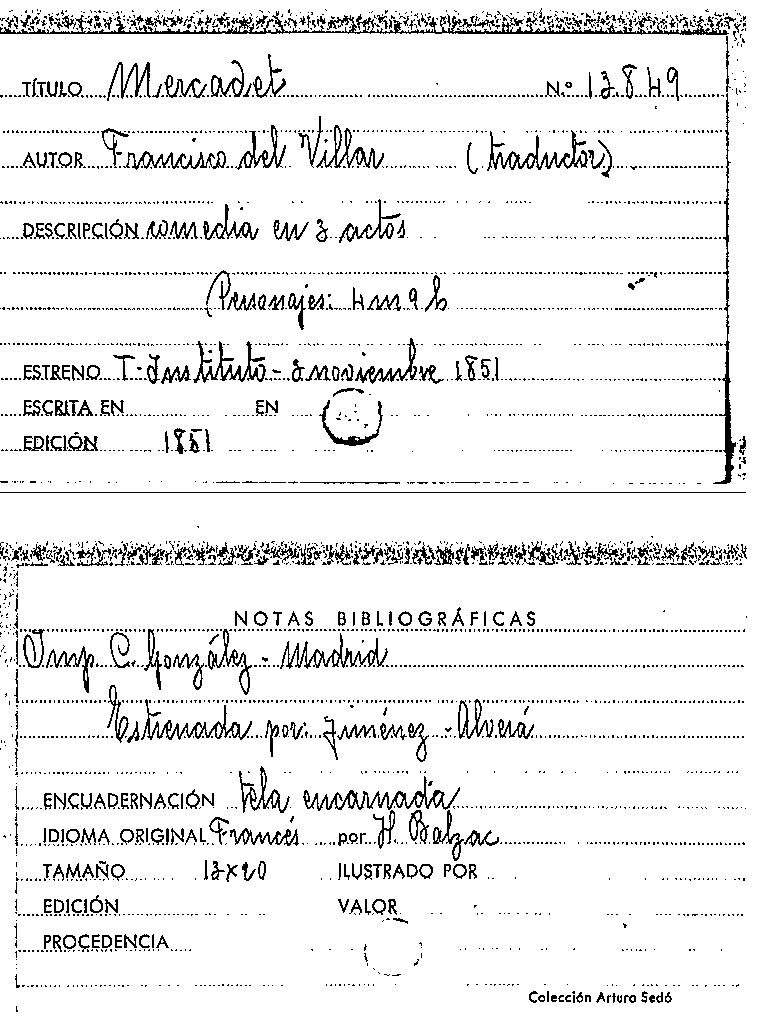 TÍTULO Mercadet N.º 13849
AUTOR Francisco del Villar (traductor)
DESCRIPCIÓN comedia en 3 actos
(Personajes: 4 m 9 h
ESTRENO T. Instituto - 3 noviembre 1851
ESCRITA EN EN
EDICIÓN 1851
NOTAS BIBLIOGRÁFICAS
Imp. C. González - Madrid
Estrenada por: Jiménez - Alverá
ENCUADERNACIÓN tela encarnada
IDIOMA ORIGINAL Francés por H. Balzac
TAMAÑO 13x20 ILUSTRADO POR
EDICIÓN VALOR
PROCEDENCIA
Colección Arturo Sedó